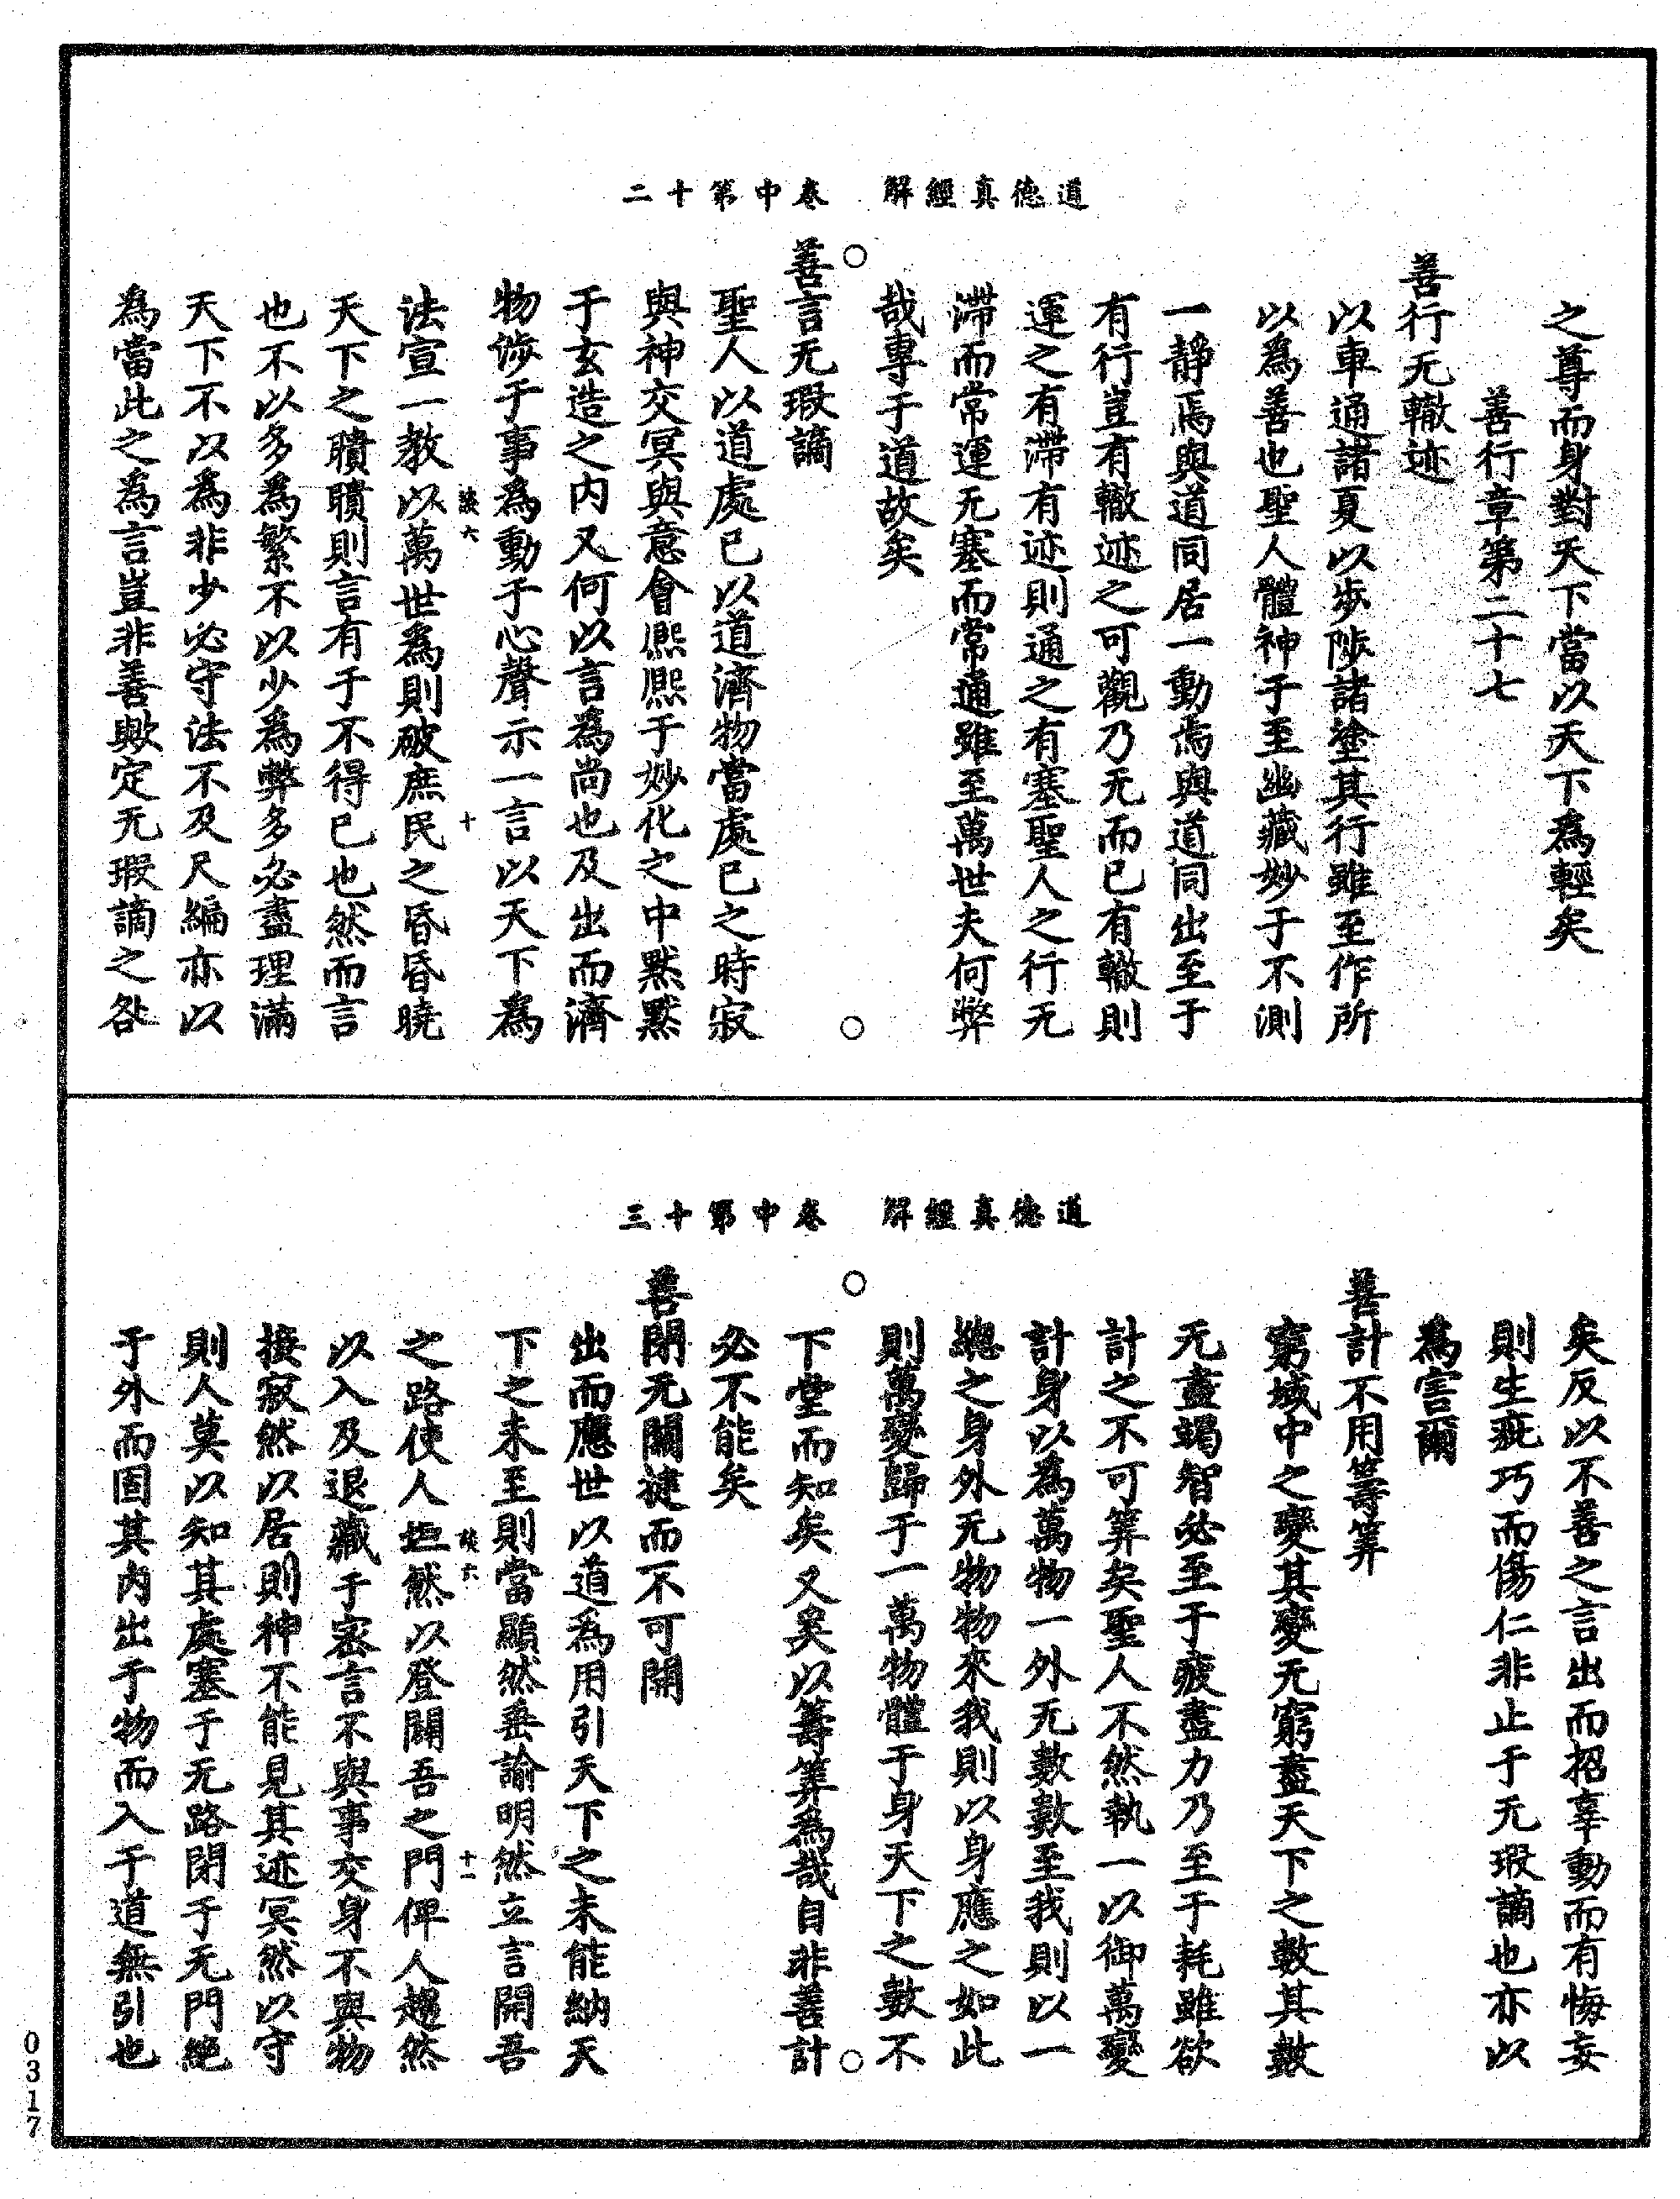 道德真經解　卷中第十二
之尊而身對天下當以天下為輕矣
善行章第二十七
善行无轍迹
以車通諸夏以步陟諸塗其行雖至作所
以為善也聖人體神于至幽藏妙于不測
一靜焉與道同居一動焉與道同出至于
有行豈有轍迹之可觀乃无而已有轍則
運之有滯有迹則通之有塞聖人之行无
滯而常運无塞而常通雖至萬世夫何弊
哉專于道故矣
善言无瑕讁
聖人以道處已以道濟物當處已之時寂
與神交冥與意會熈熈于妙化之中黙黙
于玄造之内又何以言為尚也及出而濟
物俢于事為動于心聲示一言以天下為
法宣一教以萬世為則破庶民之昏昏曉
談六　十
天下之瞶瞶則言有于不得已也然而言
也不以多為繁不以少為弊多必盡理滿
天下不以為非少必守法不及尺編亦以
為當此之為言豈非善歟定无瑕讁之咎
道德真經解　卷中第十三
矣反以不善之言出而招辜動而有悔妄
則生疵巧而傷仁非止于无瑕讁也亦以
為害爾
善計不用籌筭
窮域中之變其變无窮盡天下之數其數
无盡竭智必至于疲盡力乃至于耗雖欲
計之不可筭矣聖人不然執一以御萬變
計身以為萬物一外无數數至我則以一
總之身外无物物來我則以身應之如此
則萬變歸于一萬物體于身天下之數不
下堂而知矣又奚以籌筭為哉自非善計
必不能矣
善閉无關揵而不可開
出而應世以道為用引天下之未能納天
下之未至則當顯然垂諭明然立言開吾
之路使人坦然以登闢吾之門俾人趨然
談六　十一
以入及退藏于密言不與事交身不與物
接寂然以居則神不能見其迹冥然以守
則人莫以知其處塞于无路閉于无門絕
于外而固其内出于物而入于道無引也
0317